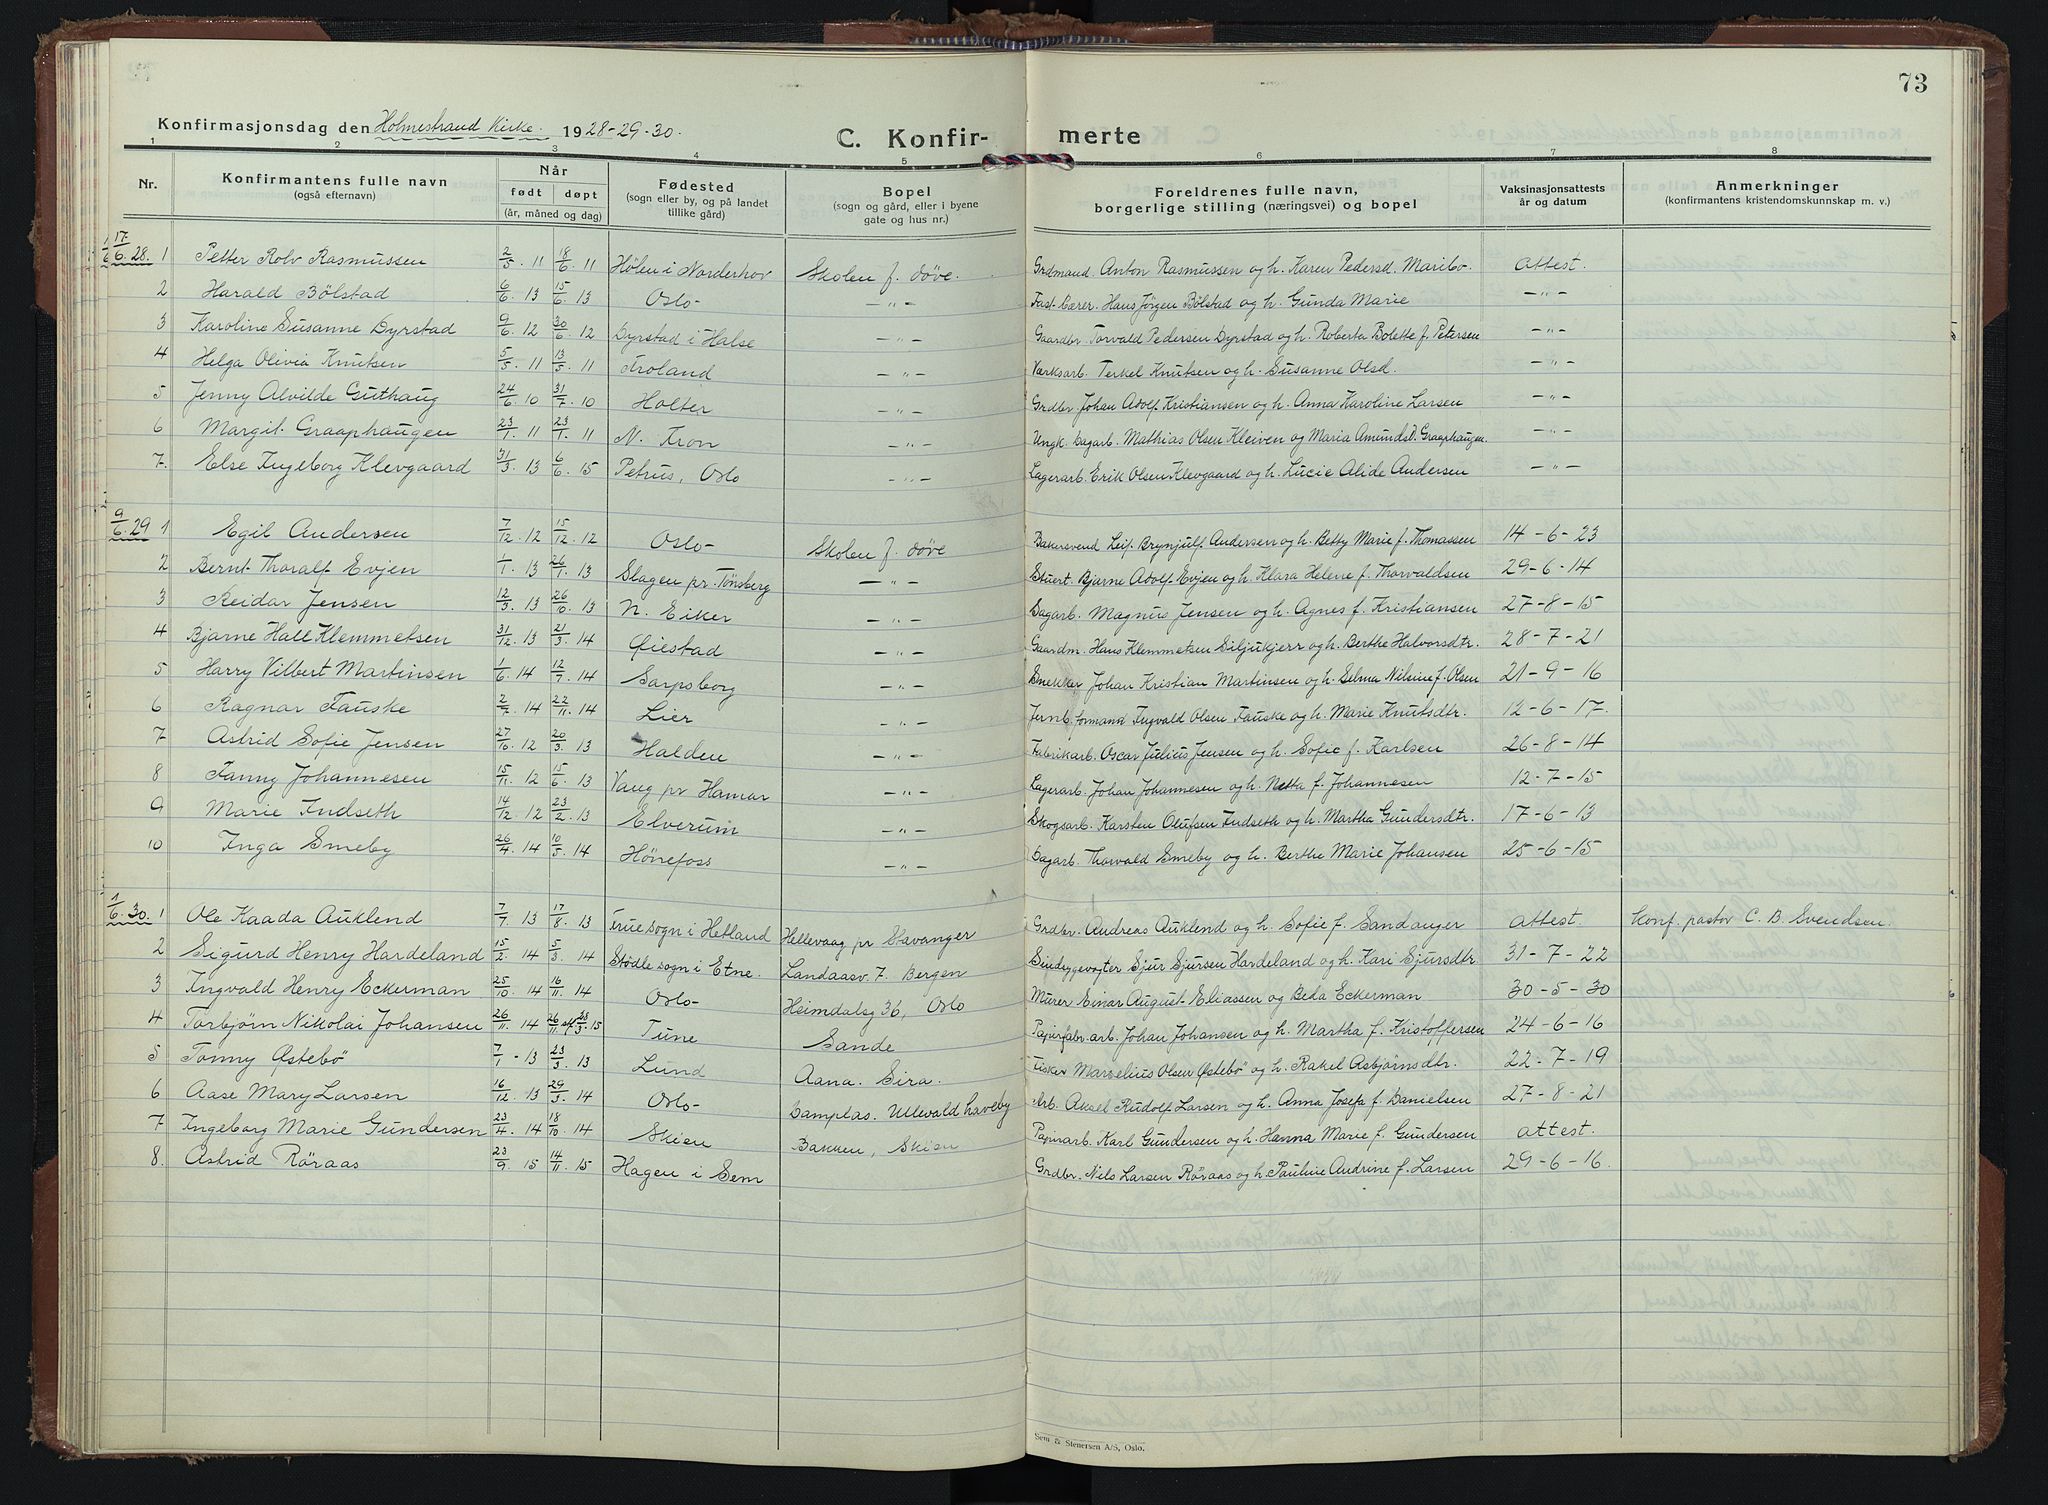 73
Konfirmasjonsdag den Holmestrand Kirke. 1928-29-30. C. Konfir- merte
1 2 3 4 5 6 7 8
Nr. Konfirmantens fulle navn (også efternavn) Når født døpt (år, måned og dag) Fødested (sogn eller by, og på landet tillike gård) Bopel (sogn og gård, eller i byene gate og hus nr.) Foreldrenes fulle navn, borgerlige stilling (næringsvei) og bopel Vaksinasjonsattests år og datum Anmerkninger (konfirmantens kristendomskunnskap m. v.)
17/6. 28. 1 Petter Rolv Rasmussen 2/5. 11 18/6. 11 Hølen i Norderhov Skolen f. døve. Grdmand. Anton Rasmussen og h. Karen Pedersd. Maribo. Attest.
2 Harald Bölstad 6/6. 13 15/6. 13 Oslo - " - Hans Jörgen Bölstad og h. Gunda Marie - " -
3 Karoline Susanne Dyrstad 9/6. 12 30/6. 12 Dyrstad i Halse - " - Gaardbr. Torvald Pedersen Dyrstad og h. Roberta Bolette f. Petersen - " -
4 Helga Olivia Knutsen 5/5. 11 13/5. 11 Froland - " - Verksarb. Terkel Knutsen og h. Susanne Olsd. - " -
5 Jenny Alvilde Guthaug 24/6. 10 31/7. 10 Holter - " - Grdbr. Johan Adolf Kristiansen og h. Anna Karoline Larsen - " -
6 Margit Graaphaugen 23/1. 11 23/1. 11 N. Fron - " - Ungk. Dagarb. Mathias Olsen Kleiven og Maria Amundsd. Graaphaugen. - " -
7. Else Ingeborg Klevgaard 31/3. 13 6/6. 15 Petrus, Oslo - " - Lagerarb. Erik Olsen Klevgaard og h. Lucie Alide Andersen - " -
9/6. 29 1 Egil Andersen 7/12. 12 15/12. 12 Oslo - Skolen f. døve Bakersvend Leif Brynjulf Andersen og h. Betty Marie f. Thomassen 14-6-23
2 Bernt Thoralf Evjen 1/1. 13 26/1. 13 Slagen pr. Tönsberg - " - Stuert. Bjarne Adolf Evjen og h. Klara Helene f. Thorvaldsen 29-6-14
3 Reidar Jensen 12/3. 13 26/10. 13 N. Eiker - " - Sagarb. Magnus Jensen og h. Agnes f. Kristiansen 27-8-15
4 Bjarne Hall Klemmetsen 31/12. 13 21/3. 14 Øiestad - " - Gaardm. Hans Klemmetsen Siljukjerr og h. Berthe Halvorsdtr. 28-7-21
5 Harry Vilbert Martinsen 1/6. 14 12/7. 14 Sarpsborg - " - Snekker Johan Kristian Martinsen og h. Selma Nilsine f. Olsen 21-9-16
6 Ragnar Fauske 2/7. 14 22/11. 14 Lier - " - Jernb. formand Ingvald Olsen Fauske og h. Marie Knutsdtr. 12-6-17.
7 Astrid Sofie Jensen 27/10. 12 20/3. 13 Halden - " - Fabrikarb. Oscar Julius Jensen og h. Sofie f. Karlsen 26-8-14
8 Fanny Johannesen 15/11. 12 15/6. 13 Vang pr Hamar - " - Lagerarb. Johan Johannesen og h. Netta f. Johannesen 12-7-15
9 Marie Indseth 14/12. 12 23/2. 13 Elverum - " - Skogsarb. Karsten Olufsen Indseth og h. Martha Gundersdtr. 17-6-13
10 Inga Smeby 26/4. 14 10/5. 14 Hönefoss - " - Dagarb. Thorvald Smeby og h. Berthe Marie Johansen 25-6-15
1/6. 30. 1 Ole Kaada Auklend 7/7. 13 17/8. 13 Fruesogn i Hetland Hillevaag pr Stavanger Grdbr. Andreas Auklend og h. Sofie f. Sandanger Attest Konf. pastor C. B. Svendsen.
2 Sigurd Henry Hardeland 15/2. 14 5/3. 14 Stödle sogn i Etne. Landaasv. 7. Bergen Sindsygevogter Sjur Sjursen Hardeland og h. Kari Sjursdtr 31-7-22
3 Ingvald Henry Eckerman 25/10. 14 16/11. 14 Oslo - Heimdalsg 36, Oslo Murer Einar August Eliassen og Beda Eckerman 30-5-30
4 Torbjörn Nikolai Johansen 26/11. 14 26/11 st. 23/3. 15 Tune Sande Papirfabr. arb. Johan Johansen og h. Martha f. Kristoffersen 24-6-16
5 Tonny Østebö 7/1 - 13 23/3. 13 Lund Aana. Sira. Fisker Marselius Olsen Østebö og h. Rakel Asbjörnsdtr. 22-7-19
6 Aase Mary Larsen 16/12. 13 29/3. 14 Oslo - Damplas. Ullevald haveby Arb. Aksel Rudolf Larsen og h. Anna Josefa f. Danielsen 27-8-21
7 Ingeborg Marie Gundersen 23/4. 14 18/10. 14 Skien Bakken, Skien Papirarb. Karl Gundersen og h. Hanna Marie f. Gundersen Attest.
8. Astrid Röraas 23/9. 15 14/11. 15 Hagen i Sem Grdbr. Nils Larsen Röraas og h. Pauline Andrine f. Larsen 29-6-16.
Sem & Stenersen A/S, Oslo.